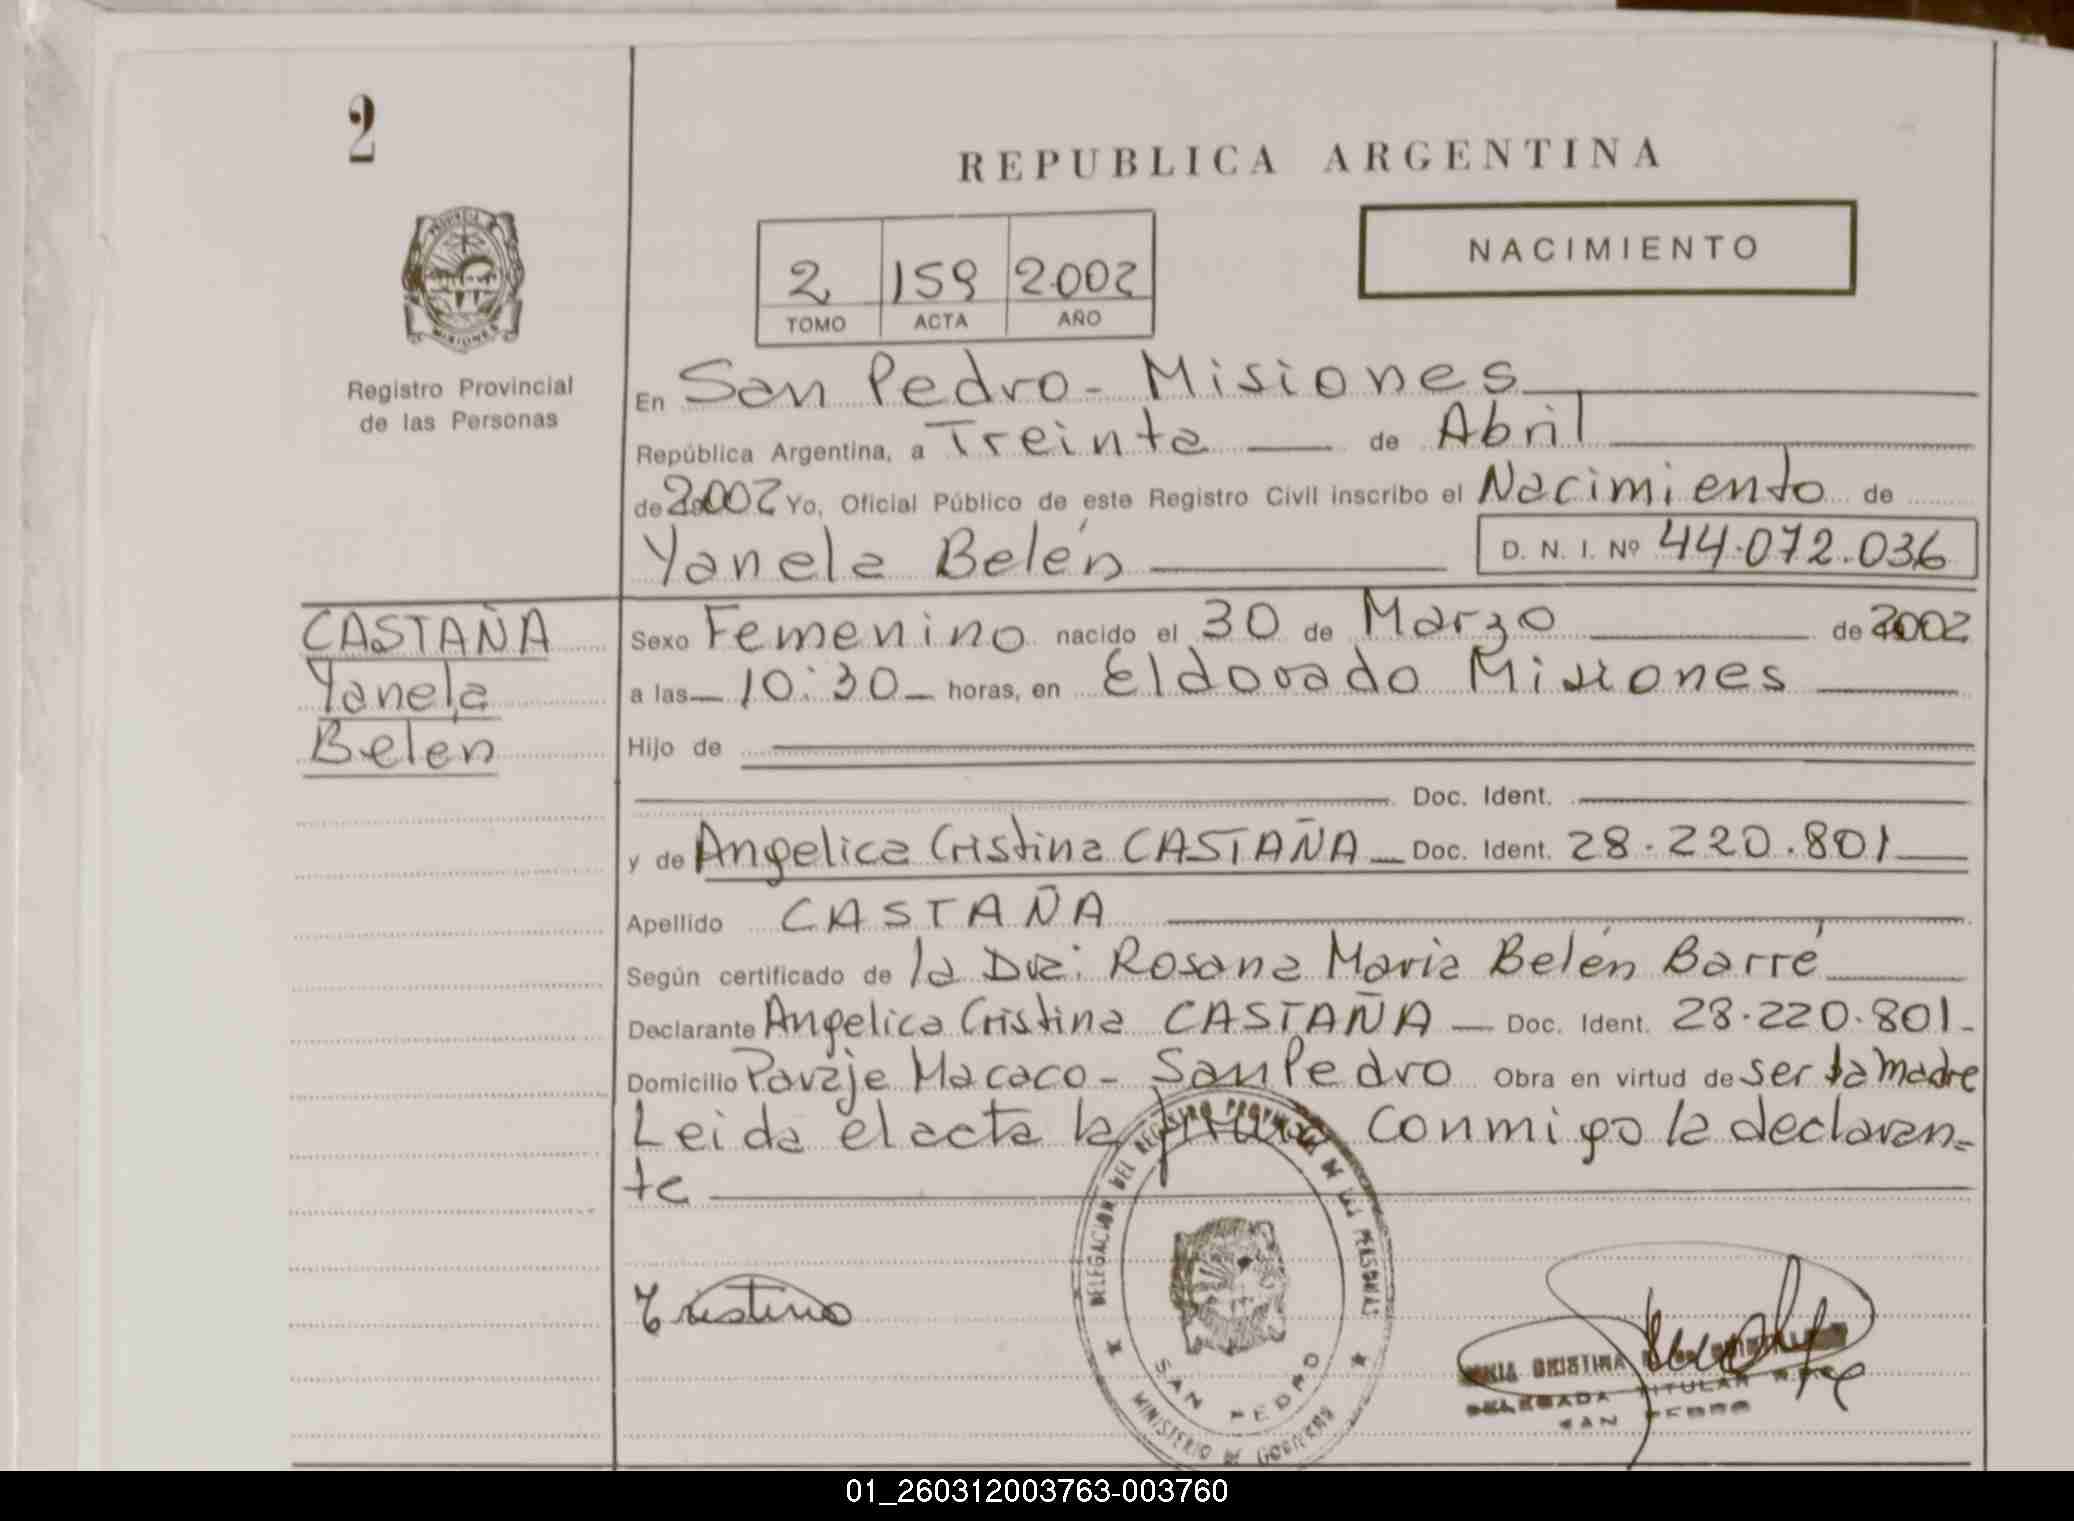 2
REPUBLICA ARGENTINA
NACIMIENTO
2 159 2002
TOMO ACTA AÑO
MISIONES
Registro Provincial
de las Personas
En San Pedro - Misiones
República Argentina, a Treinta de Abril
de 2002 Yo, Oficial Público de este Registro Civil inscribo el Nacimiento de
Yanela Belén D. N. I. Nº 44.072.036
CASTAÑA
Yanela
Belén
Sexo Femenino nacido el 30 de Marzo de 2002
a las 10:30 horas, en Eldorado Misiones
Hijo de
Doc. Ident.
y de Angelica Cristina CASTAÑA Doc. Ident. 28.220.801
Apellido CASTAÑA
Según certificado de la Dra: Rosana Maria Belén Barré
Declarante Angelica Cristina CASTAÑA Doc. Ident. 28.220.801-
Domicilio Paraje Macaco - San Pedro Obra en virtud de ser la madre
Leida el acta la firma conmigo la declaran=
te
DELEGACION DEL REGISTRO PROVINCIAL DE LAS PERSONAS
SAN PEDRO
MINISTERIO DE GOBIERNO
Cristina
CRISTINA
DELEGADA TITULAR
SAN PEDRO
01_260312003763-003760